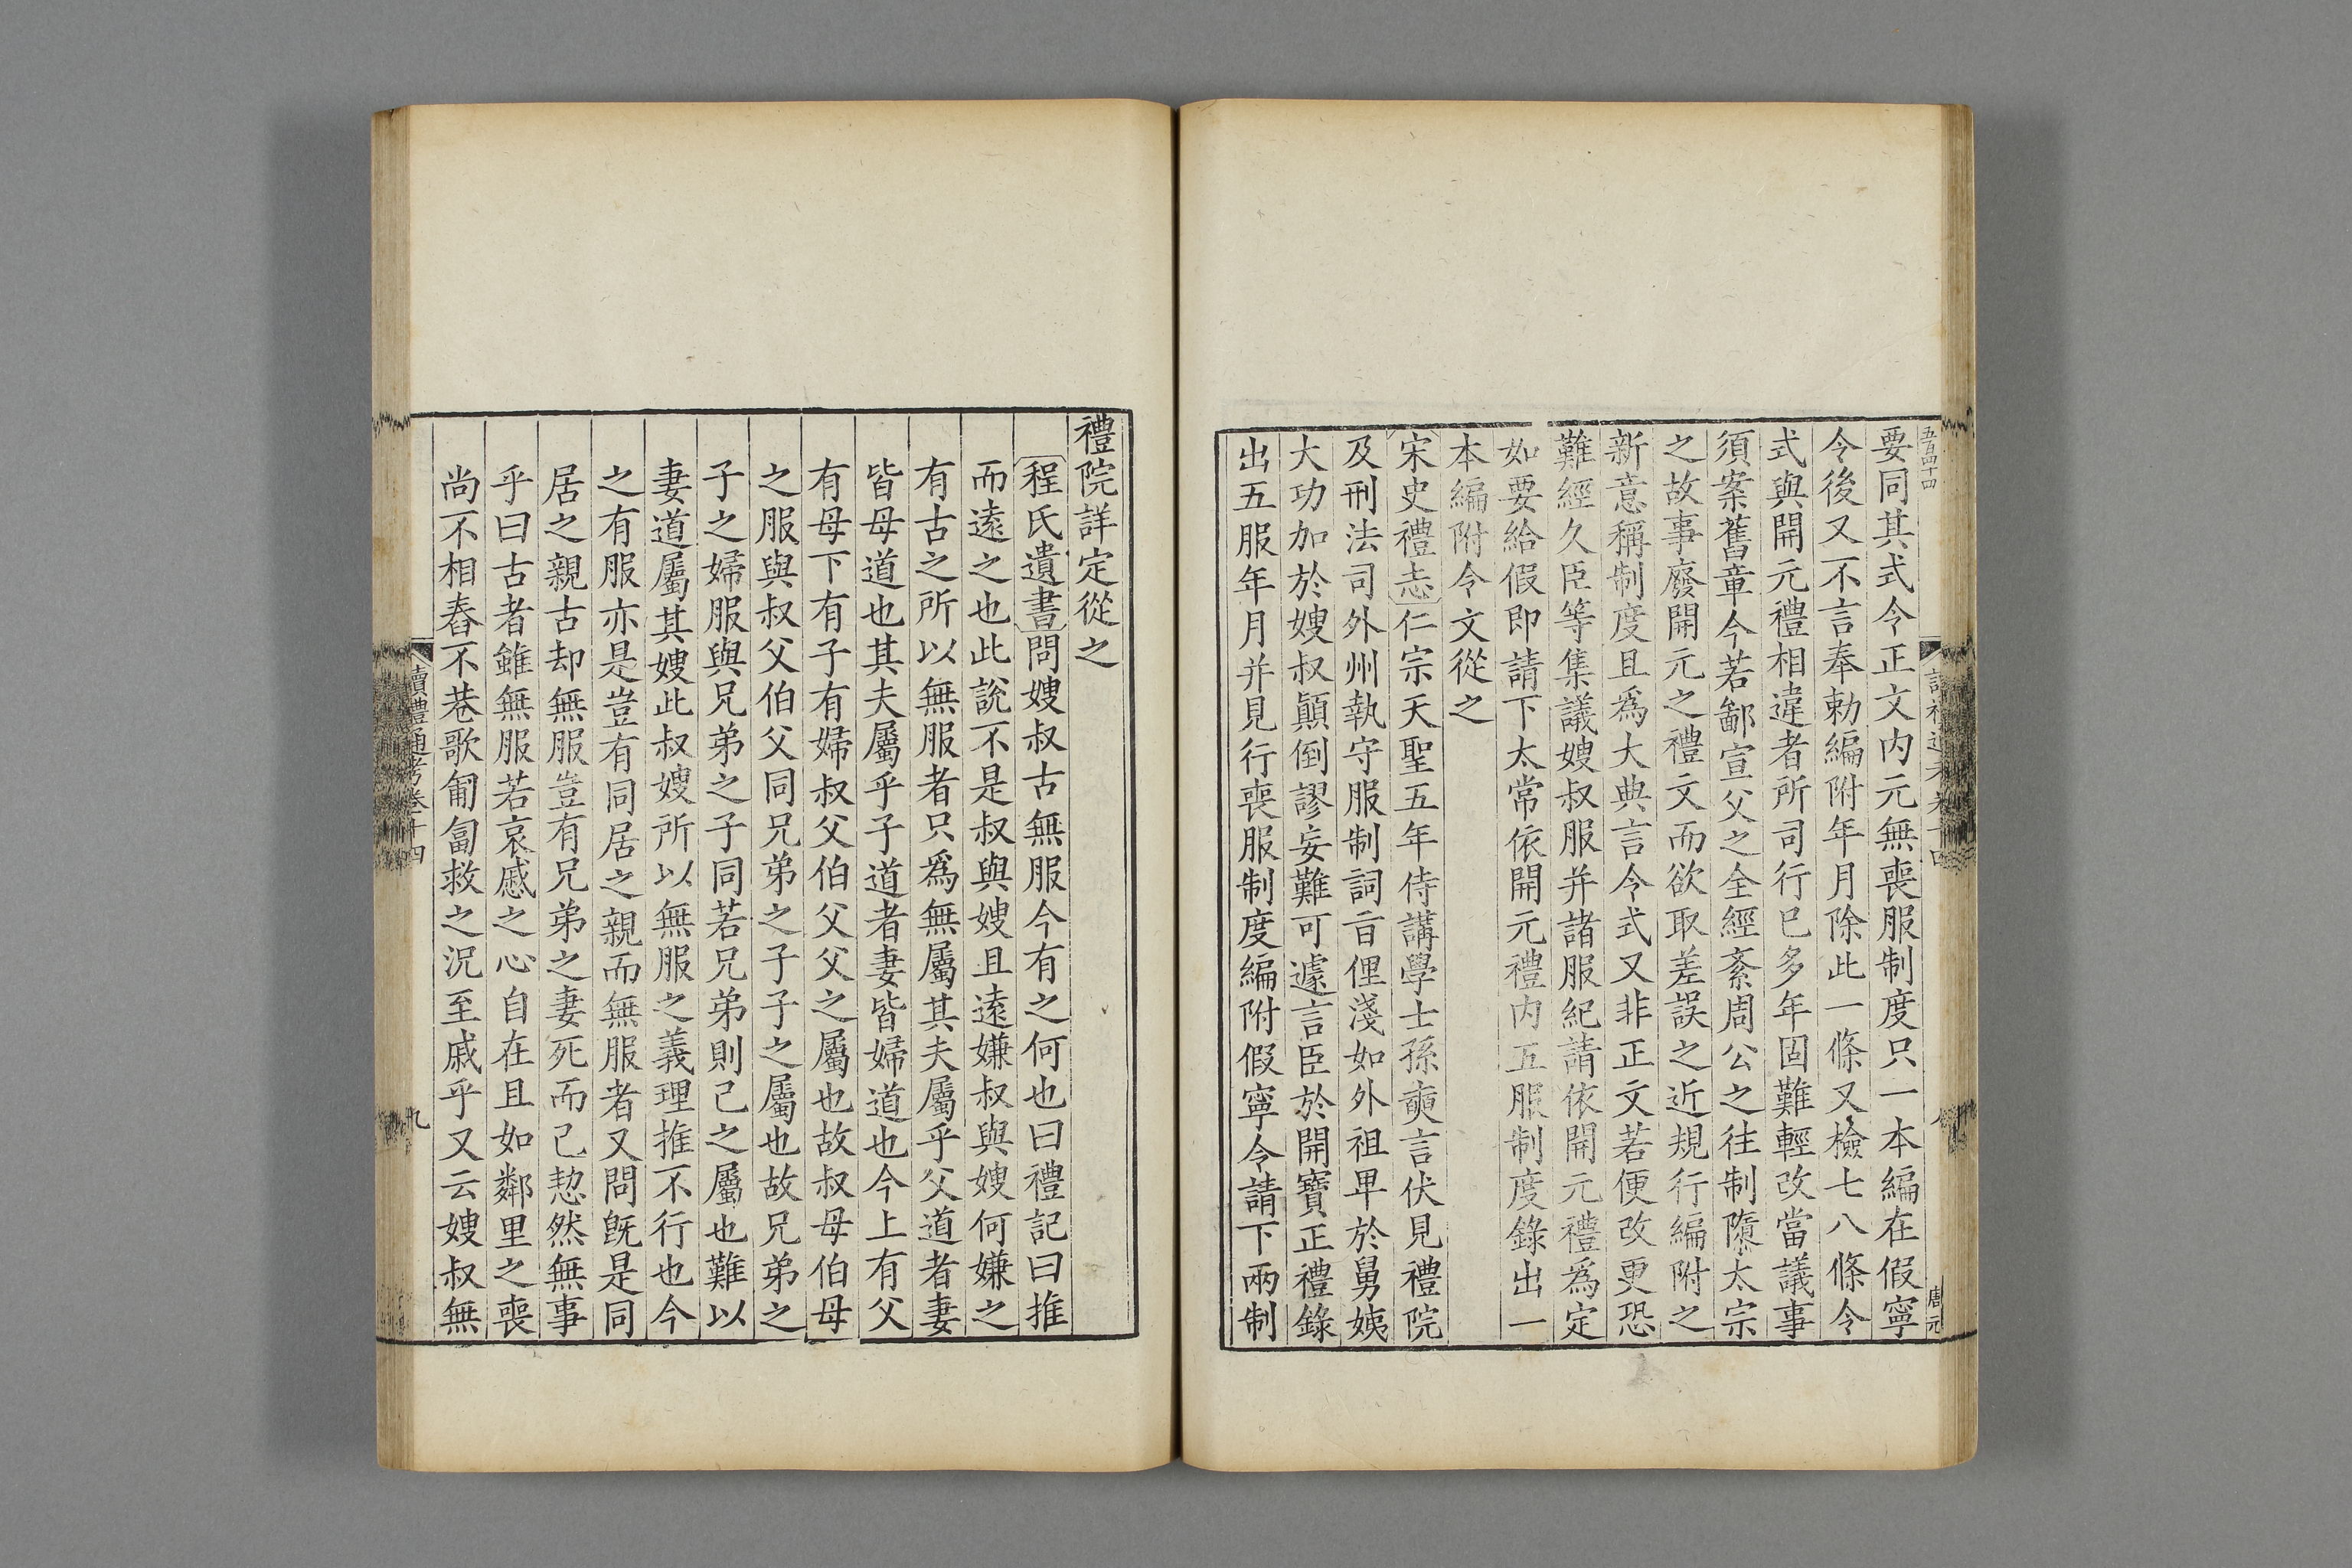 要同其式令正文内元無喪服制度只一本編在假寧
令後又不言奉勅編附年月除此一條又檢七八條令
式與開元禮相違者所司行巳多年固難輕改當議事
須案舊章今若鄙宣父之全經紊周公之往制隳太宗
之故事廢開元之禮文而欲取差誤之近規行編附之
新意稱制度且爲大典言令式又非正文若便改更恐
難經久臣等集議嫂叔服并諸服紀請依開元禮爲定
如要給假即請下太常依開元禮内五服制度錄出一
本編附令文從之
宋史禮志仁宗天聖五年侍講學士孫奭言伏見禮院
及刑法司外州執守服制詞旨俚淺如外祖卑於舅姨
大功加於嫂叔顚倒謬妄難可遽言臣於開寶正禮錄
出五服年月并見行喪服制度編附假寧令請下兩制
禮院詳定從之
程氏遺書問嫂叔古無服今有之何也曰禮記曰推
而遠之也此說不是叔與嫂且遠嫌叔與嫂何嫌之
有古之所以無服者只爲無屬其夫屬乎父道者妻
皆母道也其夫屬乎子道者妻皆婦道也今上有父
有母下有子有婦叔父伯父父之屬也故叔母伯母
之服與叔父伯父同兄弟之子子之屬也故兄弟之
子之婦服與兄弟之子同若兄弟則己之屬也難以
妻道屬其嫂此叔嫂所以無服之義理推不行也今
之有服亦是豈有同居之親而無服者又問旣是同
居之親古却無服豈有兄弟之妻死而己恝然無事
乎曰古者雖無服若哀戚之心自在且如鄰里之喪
尚不相舂不巷歌匍匐救之況至戚乎又云嫂叔無
讀禮通考卷十四
九